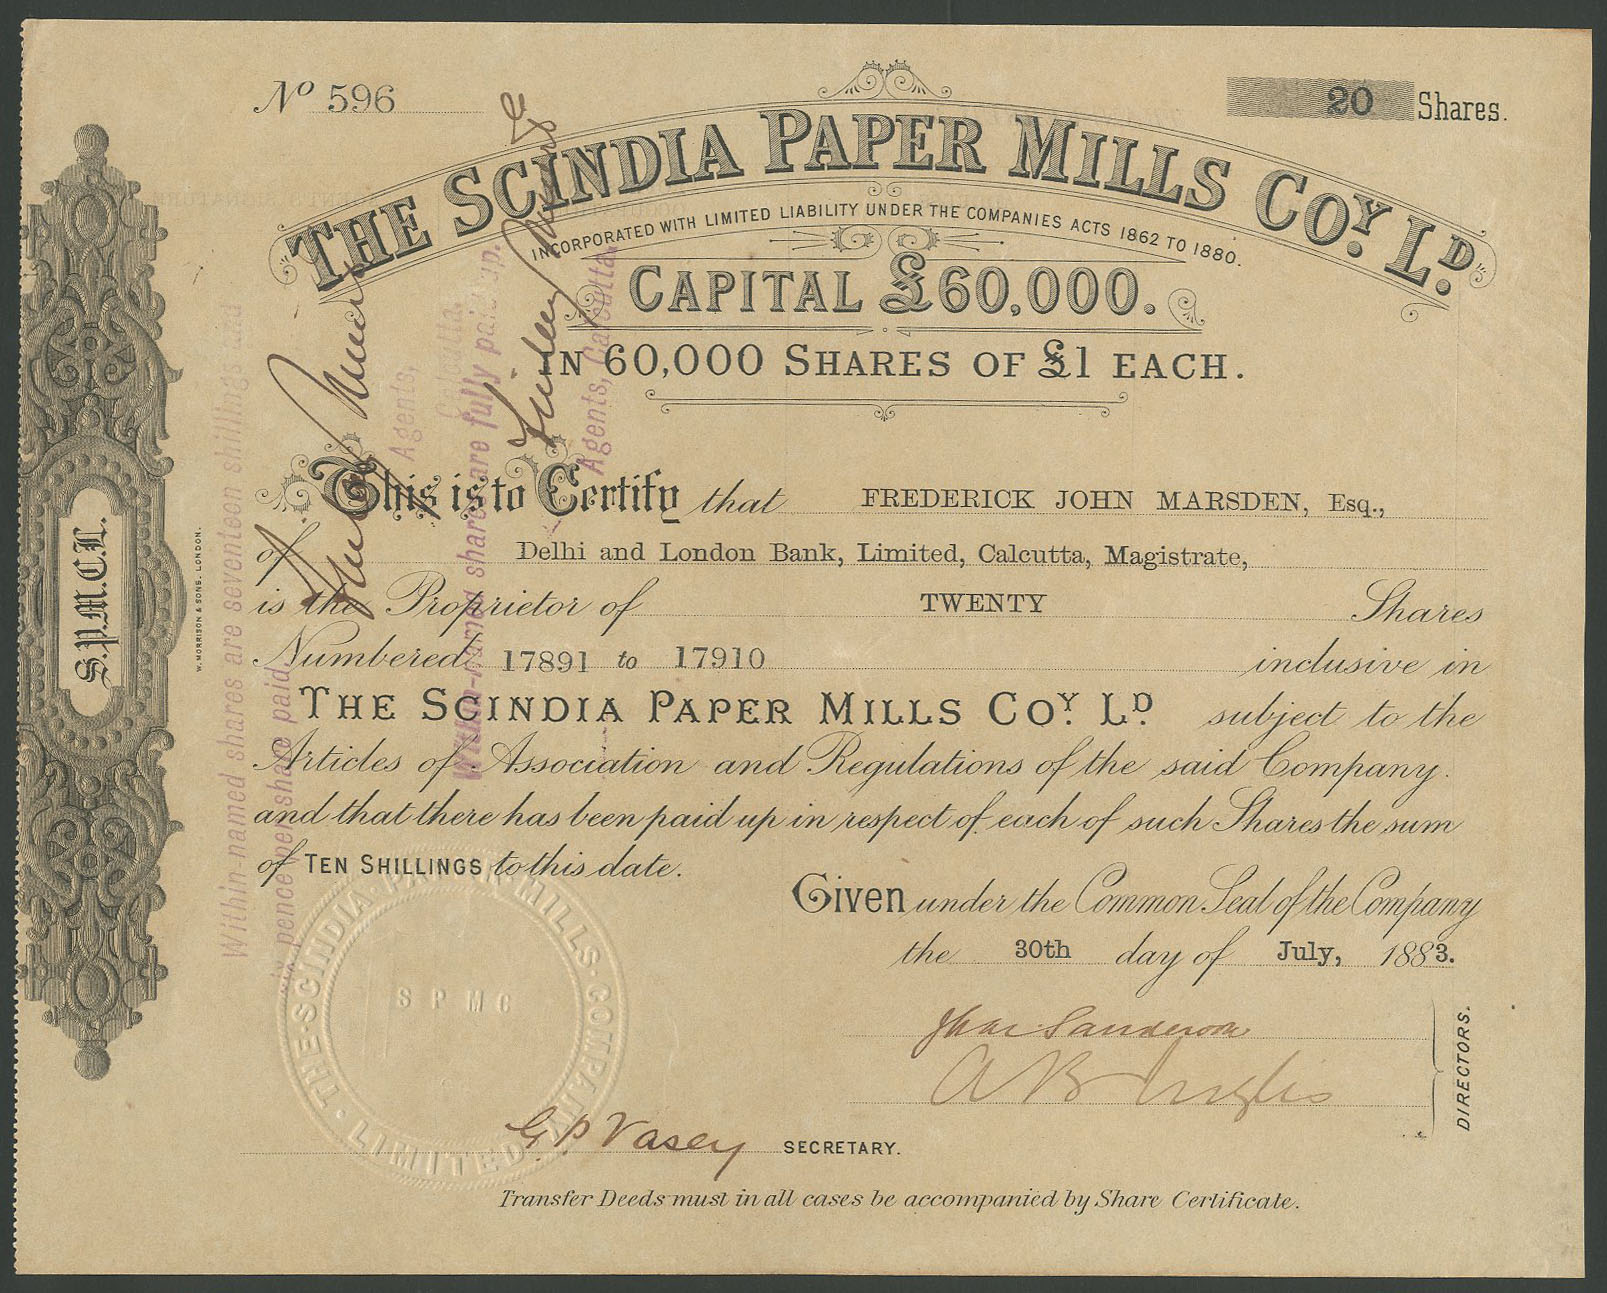 Nº 596
20 Shares.
THE SCINDIA PAPER MILLS COY. LD.
INCORPORATED WITH LIMITED LIABILITY UNDER THE COMPANIES ACTS 1862 TO 1880.
CAPITAL £60,000.
IN 60,000 SHARES OF £1 EACH.
This is to Certify that FREDERICK JOHN MARSDEN, Esq.,
of Delhi and London Bank, Limited, Calcutta, Magistrate,
is the Proprietor of TWENTY Shares
Numbered 17891 to 17910 inclusive in
THE SCINDIA PAPER MILLS COY. LD. subject to the
Articles of Association and Regulations of the said Company.
and that there has been paid up in respect of each of such Shares the sum
of TEN SHILLINGS to this date.
Given under the Common Seal of the Company
the 30th day of July, 1883.
A B Inglis
DIRECTORS.
G. P Vasey SECRETARY.
Transfer Deeds must in all cases be accompanied by Share Certificate.
S.P.M.C.L.
W. MORRISON & SONS. LONDON.
Within-named shares are seventeen shillings and
pence per share paid.
Agents,
Calcutta.
Within-named shares are fully paid up.
Finlay Muir & Co
Agents, Calcutta.
THE·SCINDIA·PAPER·MILLS·COMPANY·LIMITED·
S P M C